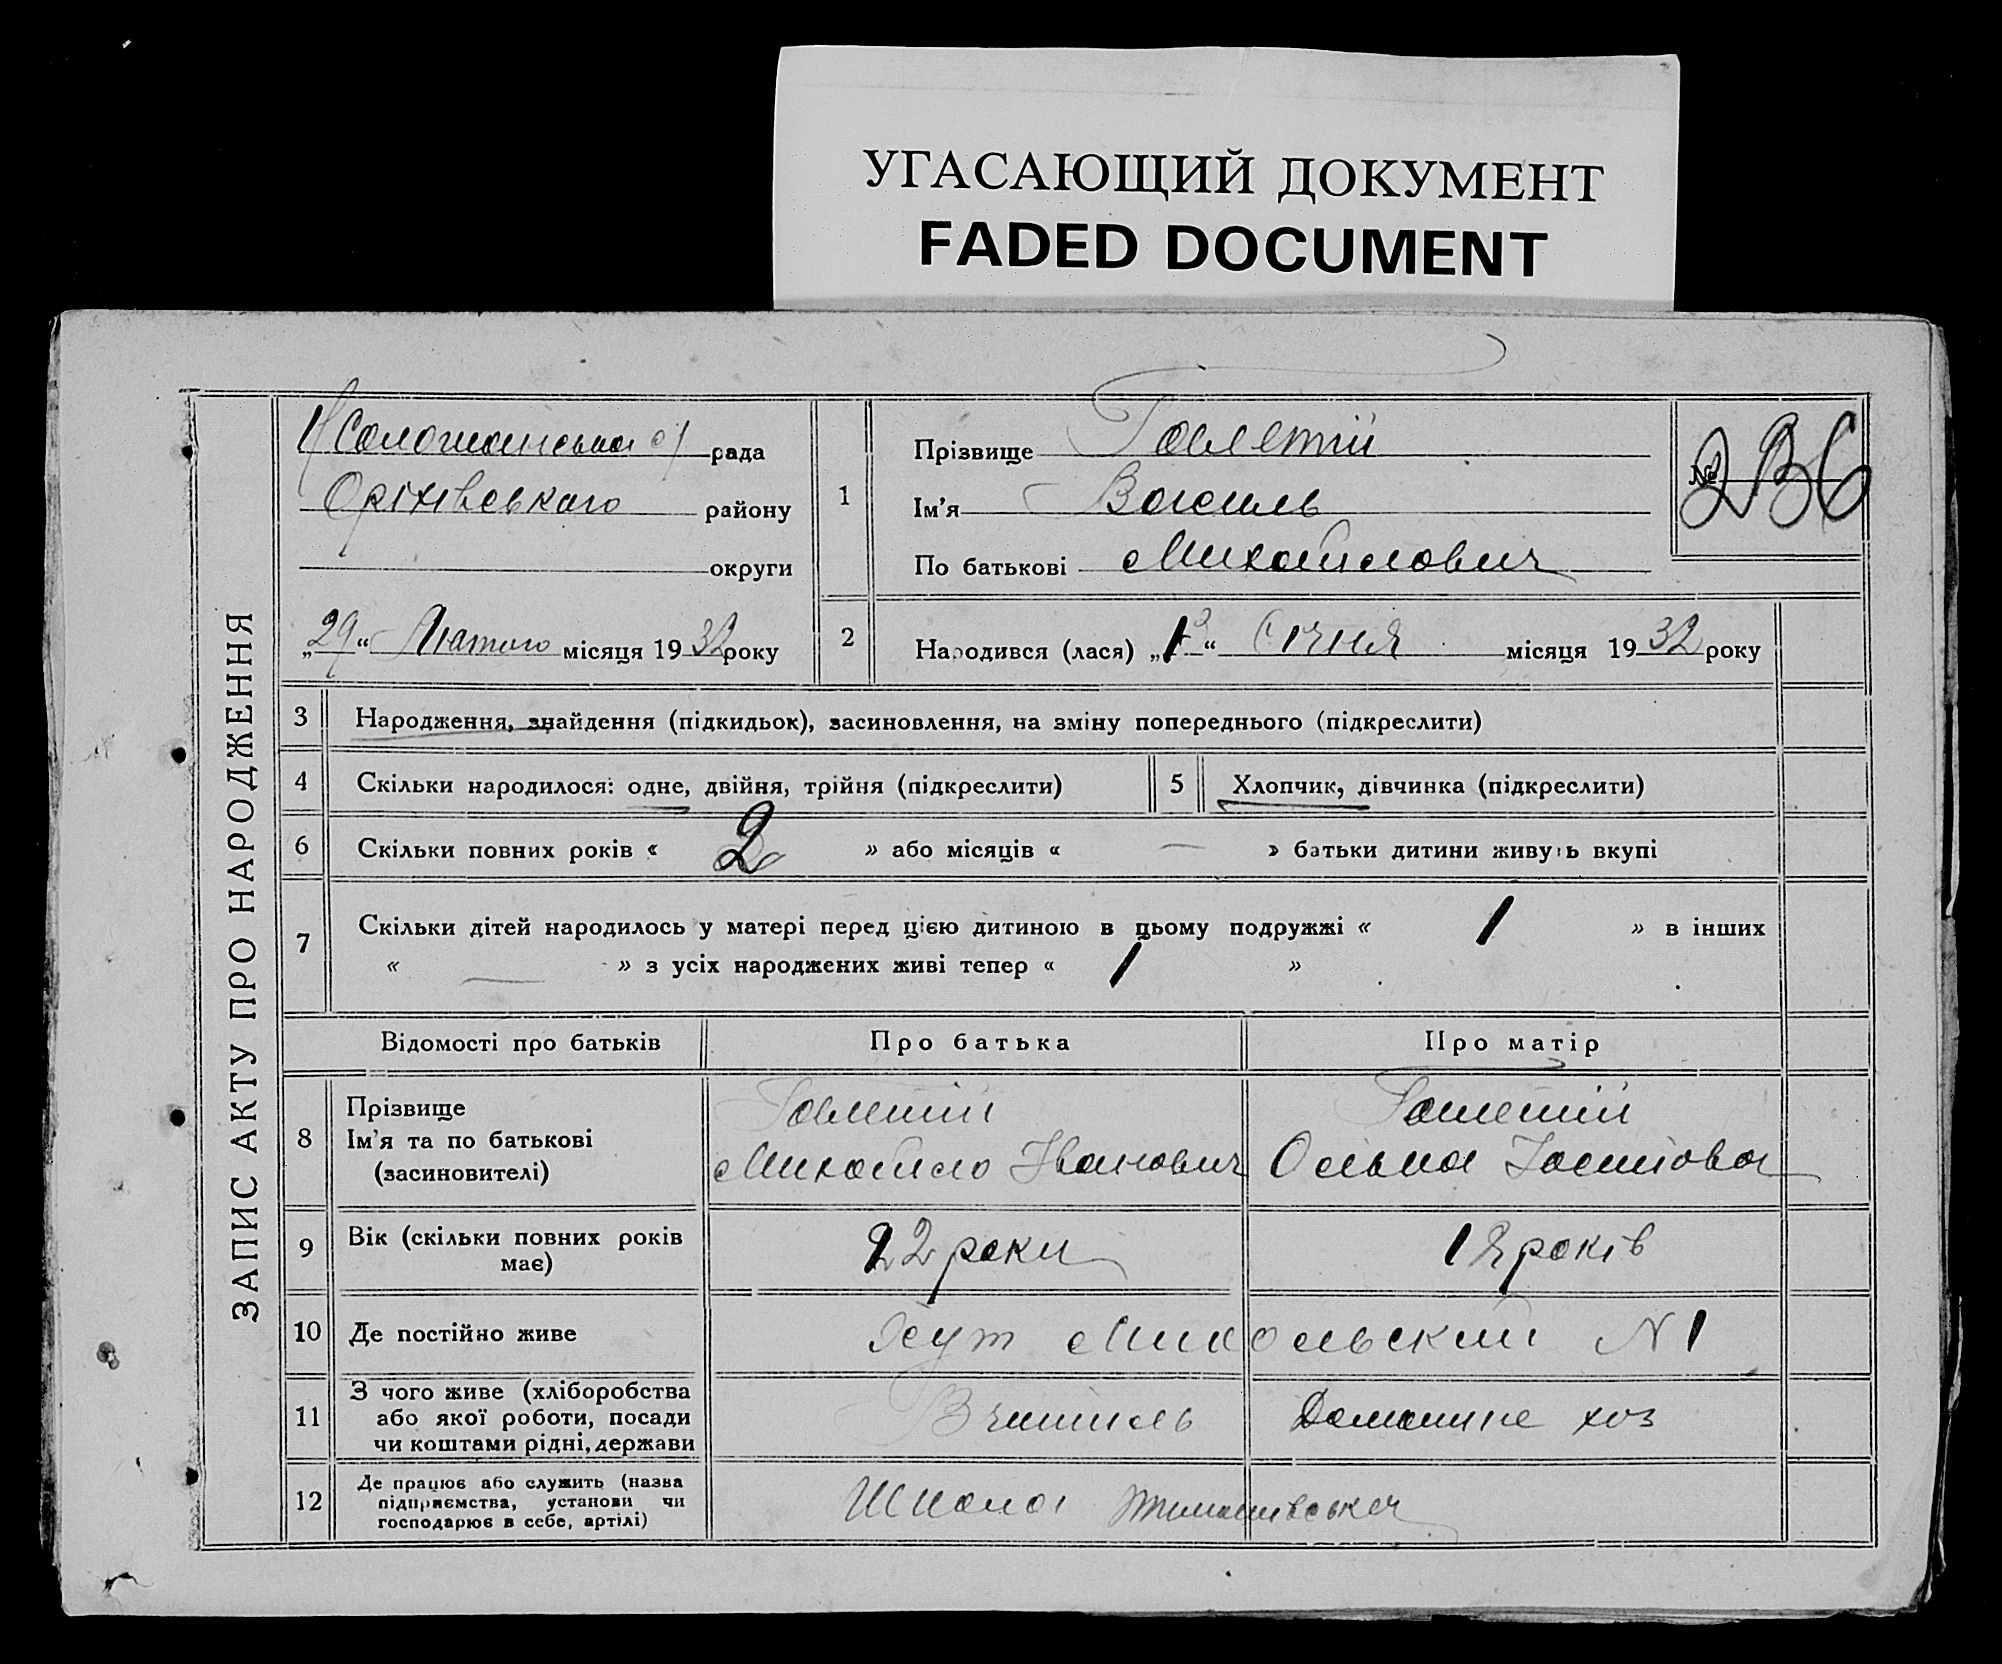 УГАСАЮЩИЙ ДОКУМЕНТ
FADED DOCUMENT
ЗАПИС АКТУ ПРО НАРОДЖЕННЯ
рада
Оріхівського району
округи
„29“ Лютого місяця 1932 року
1
Прізвище Галетій
Ім'я Василь
По батькові Михайлович
№ 236
2
Народився (лася) „ “ Січня місяця 1932 року
3 Народження, знайдення (підкидьок), засиновлення, на зміну попереднього (підкреслити)
4 Скільки народилося: одне, двійня, трійня (підкреслити)
5 Хлопчик, дівчинка (підкреслити)
6 Скільки повних років « 2 » або місяців « — » батьки дитини живуть вкупі
7 Скільки дітей народилось у матері перед цією дитиною в цьому подружжі « 1 » в інших
« — » з усіх народжених живі тепер « 1 »
Відомості про батьків Про батька Про матір
8 Прізвище Галетій Галетій
Ім'я та по батькові Михайло Іванович Ольга
(засиновителі)
9 Вік (скільки повних років має) 22 роки 18 років
10 Де постійно живе Хут Микольский N 1
11 З чого живе (хліборобства
або якої роботи, посади
чи коштами рідні, держави
Вчитель Домашнє хоз
12 Де працює або служить (назва
підприємства, установи чи
господарює в себе, артілі)
Школа